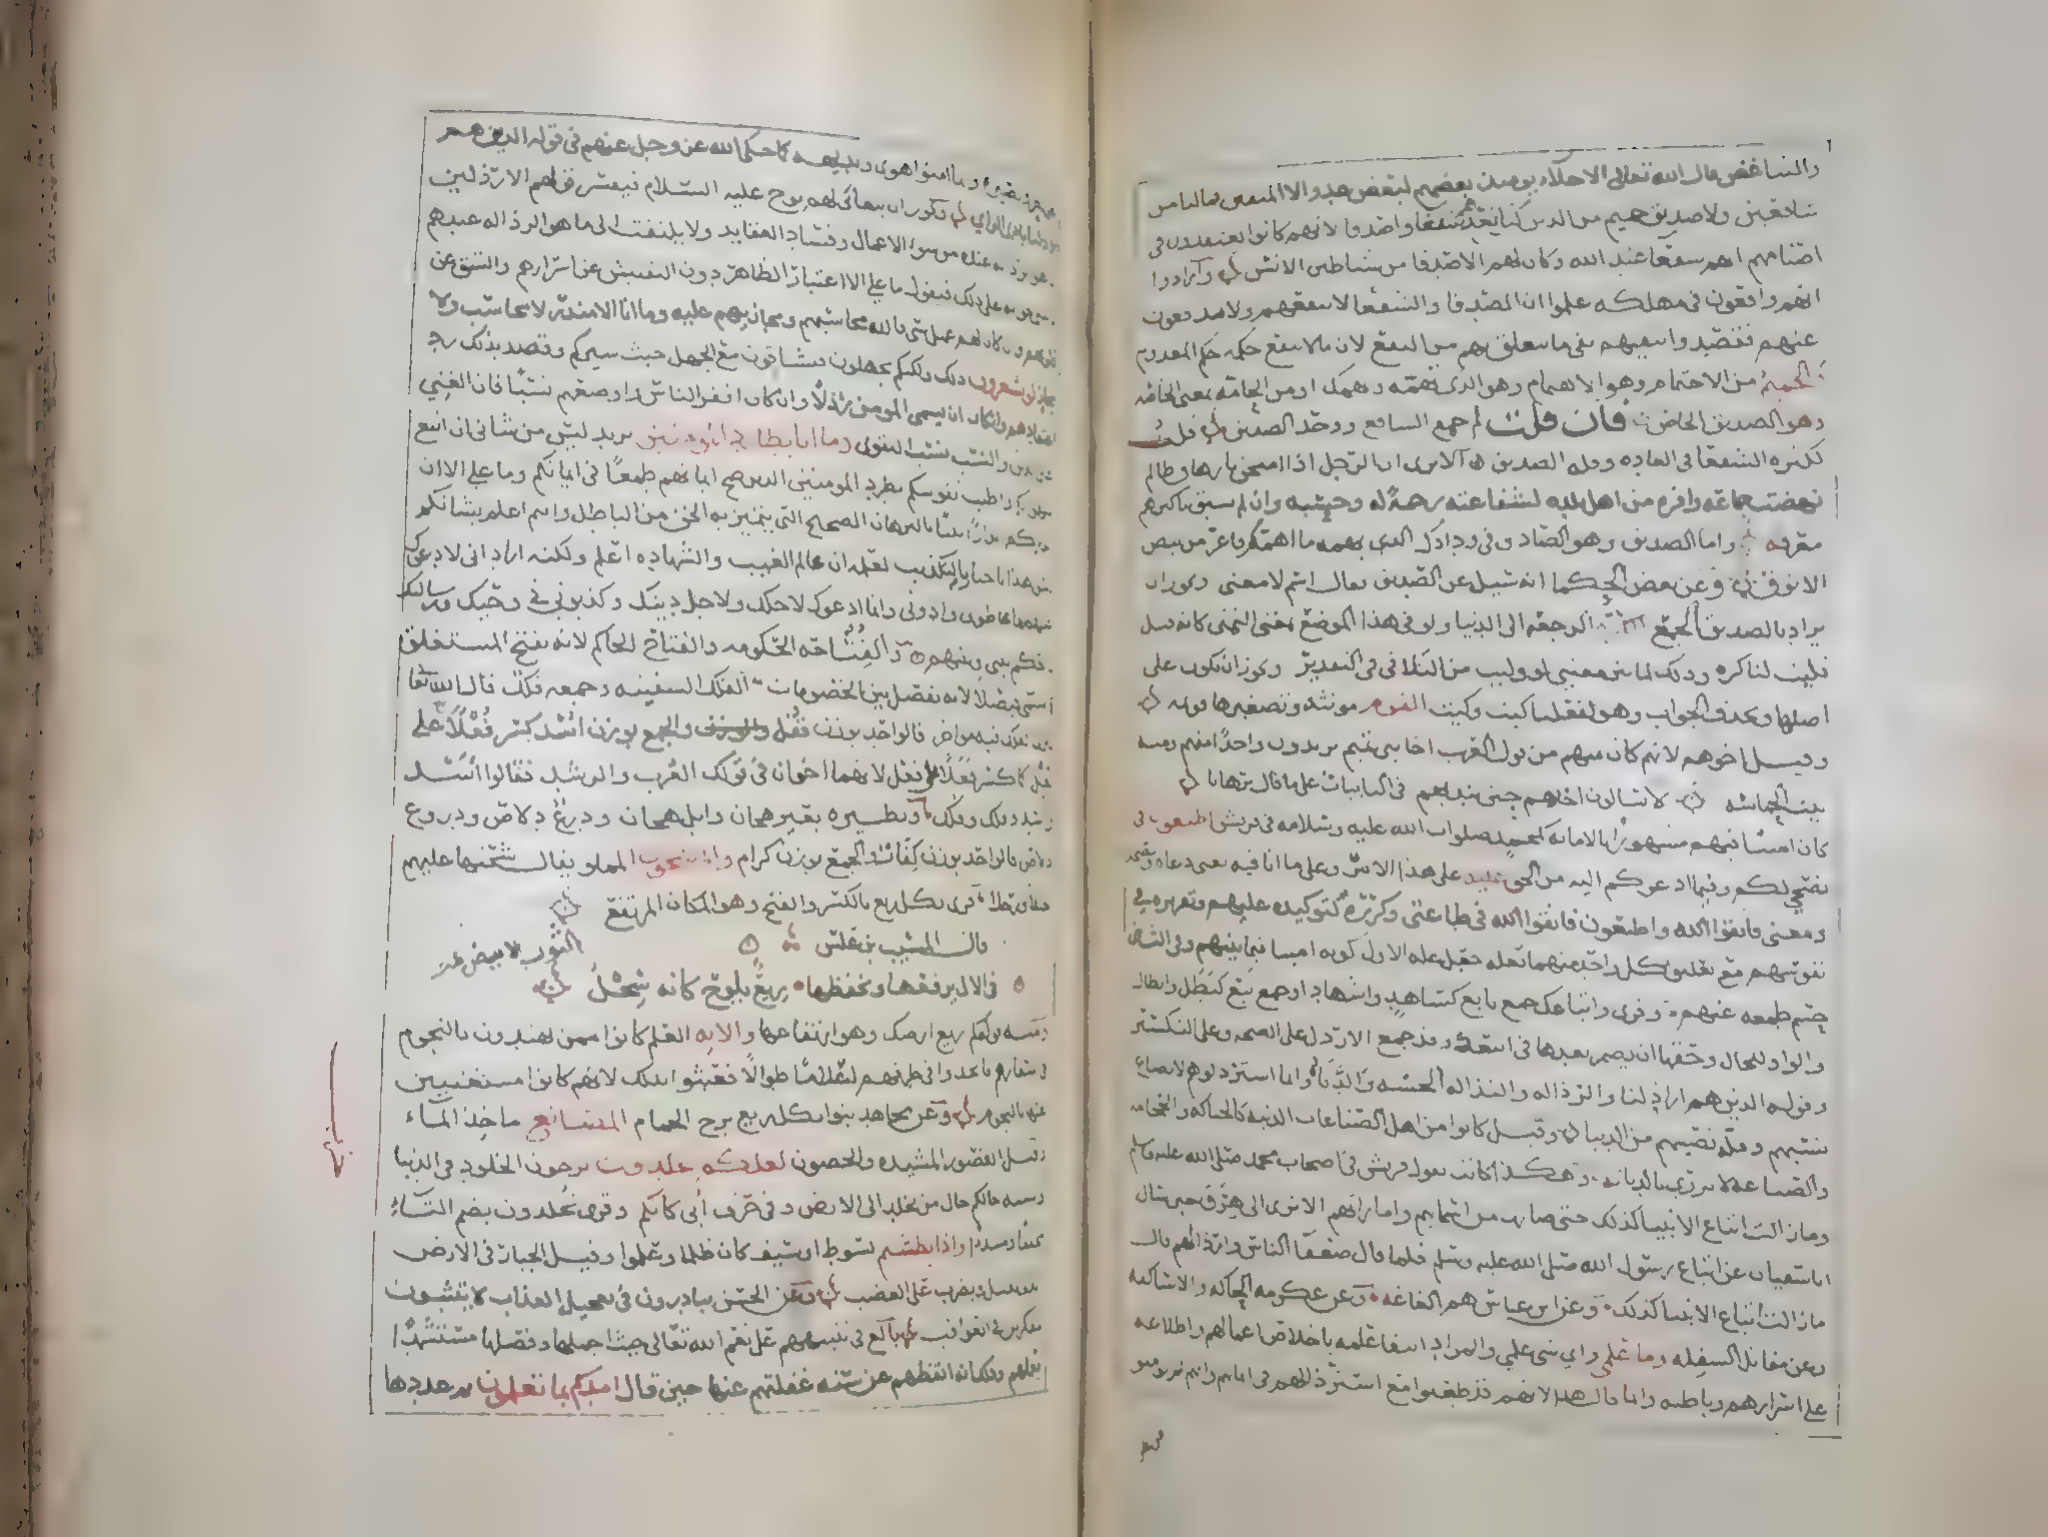 والتباغض قال الله تعالى الاخلاء يومئذ بعضهم لبعض عدو الا المتقين فمالنا من
شافعين ولا صديق حميم من الذين كنا نعدهم شفعا واصدقا لانهم كانوا يعتقدون في
اصنامهم انهم شفعا عند الله وكان لهم الاصدقا من شياطين الانس وارادوا
انهم وقعوا في مهلكه علموا ان الصدقا والشفعا لا ينفعونهم ولا يدفعون
عنهم فقصدوا بنفيهم نفي ما يتعلق بهم من النفع لان ما لا ينفع حكمه حكم المعدوم
الحميم من الاحتمام وهو الاهتمام وهو الذي يهمه ما يهمك او من الحامه بمعنى الخاصه
وهو الصديق الخاص فان قلت لم جمع الشافع ووحد الصديق قلت
لكثره الشفعا في العاده وقله الصديق الا ترى ان الرجل اذا امتحن بارهاق ظالم
نهضت جماعه وافره من اهل بلده لشفاعته رحمة له وحسبه وان لم يسبق باكثرهم
معرفه واما الصديق وهو الصادق في ودادك الذي يهمه ما اهمك فاعز من بيض
الانوق وعن بعض الحكما انه سيل عن الصديق فقال اسم لا معنى له ويجوز ان
يراد بالصديق الجمع الكره الرجعه الى الدنيا ولو في هذا الموضع بمعنى التمني كانه قيل
فليت لنا كره وذلك لما بين معنيي لو وليت من التلاقي في التقدير ويجوز ان تكون على
اصلها ويحذف الجواب وهو لفعلنا كيت وكيت القوم مونثه وتصغيرها قويمه
وقيل اخوهم لانه كان منهم من قول العرب يا اخا بني تميم يريدون يا واحدا منهم ومنه
بيت الحماسه لا يسالون اخاهم حين يندبهم في النايبات على ما قال برهانا
كان امينا فيهم مشهورا بالامانه كمحمد صلوات الله عليه وسلامه في قريش اطيعون في
نصحي لكم وفيما ادعوكم اليه من الحق عليه على هذا الامر وعلى ما انا فيه يعني دعاه ونصحه
ومعنى فاتقوا الله واطيعون فاتقوا الله في طاعتي وكرره لتوكيده عليهم وتقريره في
نفوسهم مع تعليق كل واحد منهما بعله جعل عله الاول كونه امينا فيما بينهم وفي الثاني
حسم طمعه عنهم وقرى واتباعك جمع تابع كشاهد واشهاد او جمع تبع كبطل وابطال
والواو للحال وحقها ان يضمر بعدها قد في اتبعك وقد جمع الارذل على الصحه وعلى التكسير
وقوله الذين هم اراذلنا والرذاله والنذاله الخسه والدناه وانما استرذلوهم لاتضاع
نسبهم وقله نصيبهم من الدنيا وقيل كانوا من اهل الصناعات الدنيه كالحياكه والحجامه
والصناعه لا تزري بالديانه وهكذا كانت تقول قريش في اصحاب محمد صلى الله عليه وسلم
وما زالت اتباع الانبيا كذلك حتى صارت من سماتهم واماراتهم الا ترى الى هرقل حين سال
ابا سفيان عن اتباع رسول الله صلى الله عليه وسلم فلما قال ضعفا الناس واراذلهم قال
ما زالت اتباع الانبيا كذلك وعن ابن عباس هم الغاغه وعن عكرمه الحاكه والاساكفه
وعن مقاتل السفله وما علمي واي شي علمي والمراد انتفا علمه باخلاص اعمالهم واطلاعه
على اسرارهم وباطنه وانما قال هذا لانهم قد طعنوا مع استرذالهم في ايمانهم وانهم لم يومنوا
وانما امنوا هوى وبديهه كما حكى الله عز وجل عنهم في قوله الذين هم
اراذلنا بادى الراي ويجوز ان يتغابى لهم نوح عليه السلام فيفسر قولهم الارذلين
بما هو الرذاله عنده من سوء الاعمال وفساد العقايد ولا يلتفت الى ما هو الرذاله عندهم
ثم بنى جوابه على ذلك فيقول ما علي الا اعتبار الظاهر دون التفتيش عن اسرارهم والشق عن
قلوبهم وان كان لهم عمل سي فالله محاسبهم ومجازيهم عليه وما انا الا منذر لا محاسب ولا
مجاز لو تشعرون ذلك ولكنكم تجهلون فتنساقون مع الجهل حيث سيركم وقصد بذلك رد
اعتقادهم وانكار ان يسمى المومن رذلا وان كان افقر الناس واوضعهم نسبا فان الغنى
غنى الدين والنسب نسب التقوى وما انا بطارد المومنين يريد ليس من شاني ان اتبع
شهواتكم واطيب نفوسكم بطرد المومنين الذين صح ايمانهم طمعا في ايمانكم وما علي الا ان
انذركم انذارا بينا بالبرهان الصحيح الذي يتميز به الحق من الباطل وانتم اعلم بشانكم
ليس هذا باخبار بالتكذيب لعلمه ان عالم الغيب والشهاده اعلم ولكنه اراد اني لا ادعوك
عليهم لما غاظوني واذوني وانما ادعوك لاجلك ولاجل دينك وكذبوني في وحيك ورسالتك
فاحكم بيني وبينهم والفتاحه الحكومه والفتاح الحاكم لانه يفتح المستغلق
كما سمي فيصلا لانه يفصل بين الخصومات الفلك السفينه وجمعه فلك قال الله تعالى
وترى الفلك فيه مواخر فالواحد بوزن قفل والجمع بوزن اسد كسر فعلا على
فعل كما كسر فعلا على فعل لانهما اخوان في قولك العرب والعرب والرشد والرشد فقالوا اسد
واسد وفلك وفلك ونظيره بعير هجان وابل هجان ودرع دلاص ودروع
دلاص فالواحد بوزن كناز والجمع بوزن كرام والمشحون المملو يقال شحنها عليهم
خيلا ورجلا قرى بكل ريع بالكسر والفتح وهو المكان المرتفع
قال المسيب بن علس
في الال يرفعها ويخفضها ريع يلوح كانه سحل
الثوب الابيض
ومنه قولهم كم ريع ارضك وهو ارتفاعها والايه العلم كانوا ممن يهتدون بالنجوم
في اسفارهم فاتخذوا في طرقهم اعلاما طوالا فعبثوا بذلك لانهم كانوا مستغنيين
عنها بالنجوم وعن مجاهد بنوا بكل ريع بروج الحمام المصانع ماخذ الماء
وقيل القصور المشيده والحصون لعلكم تخلدون ترجون الخلود في الدنيا
او تشبه حالكم حال من يخلد الى الارض وفي حرف ابي كانكم وقرى تخلدون بضم التاء
مخففا ومشددا واذا بطشتم بسوط او سيف كان ظلما وعلوا وقيل الجبار في الارض
الذي يقتل ويضرب على الغضب وعن الحسن يبادرون في تعجيل العذاب لا يتثبتون
مفكرين في العواقب بالغ في تنبيههم على نعم الله تعالى حيث اجملها وفصلها مستشهدا
بعلمهم وذلك انه ايقظهم عن سنه غفلتهم عنها حين قال امدكم بما تعلمون ثم عددها